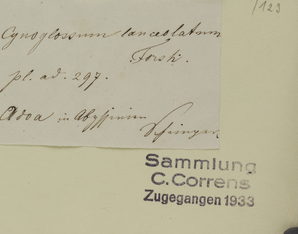 /123
Cynoglossum lanceolatum
Forsk.
pl. ad. 297.
Adoa in Abyssinien
Schimper
Sammlung
C. Correns
Zugegangen 1933